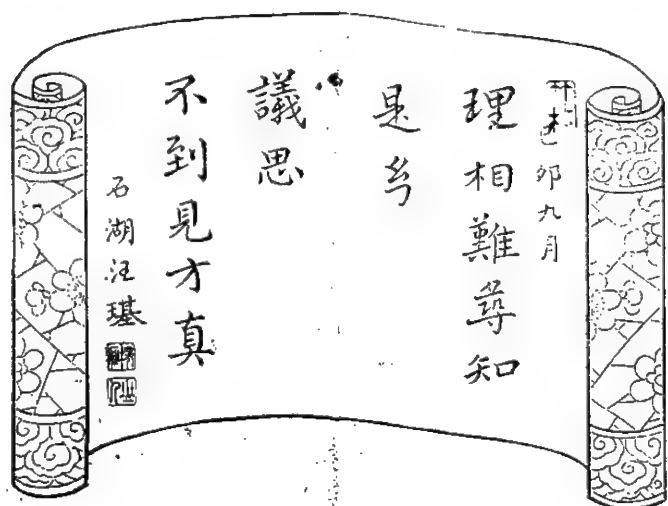 己卯九月
理相難尋知
是幻
議思
不到見方真
石湖汪璂